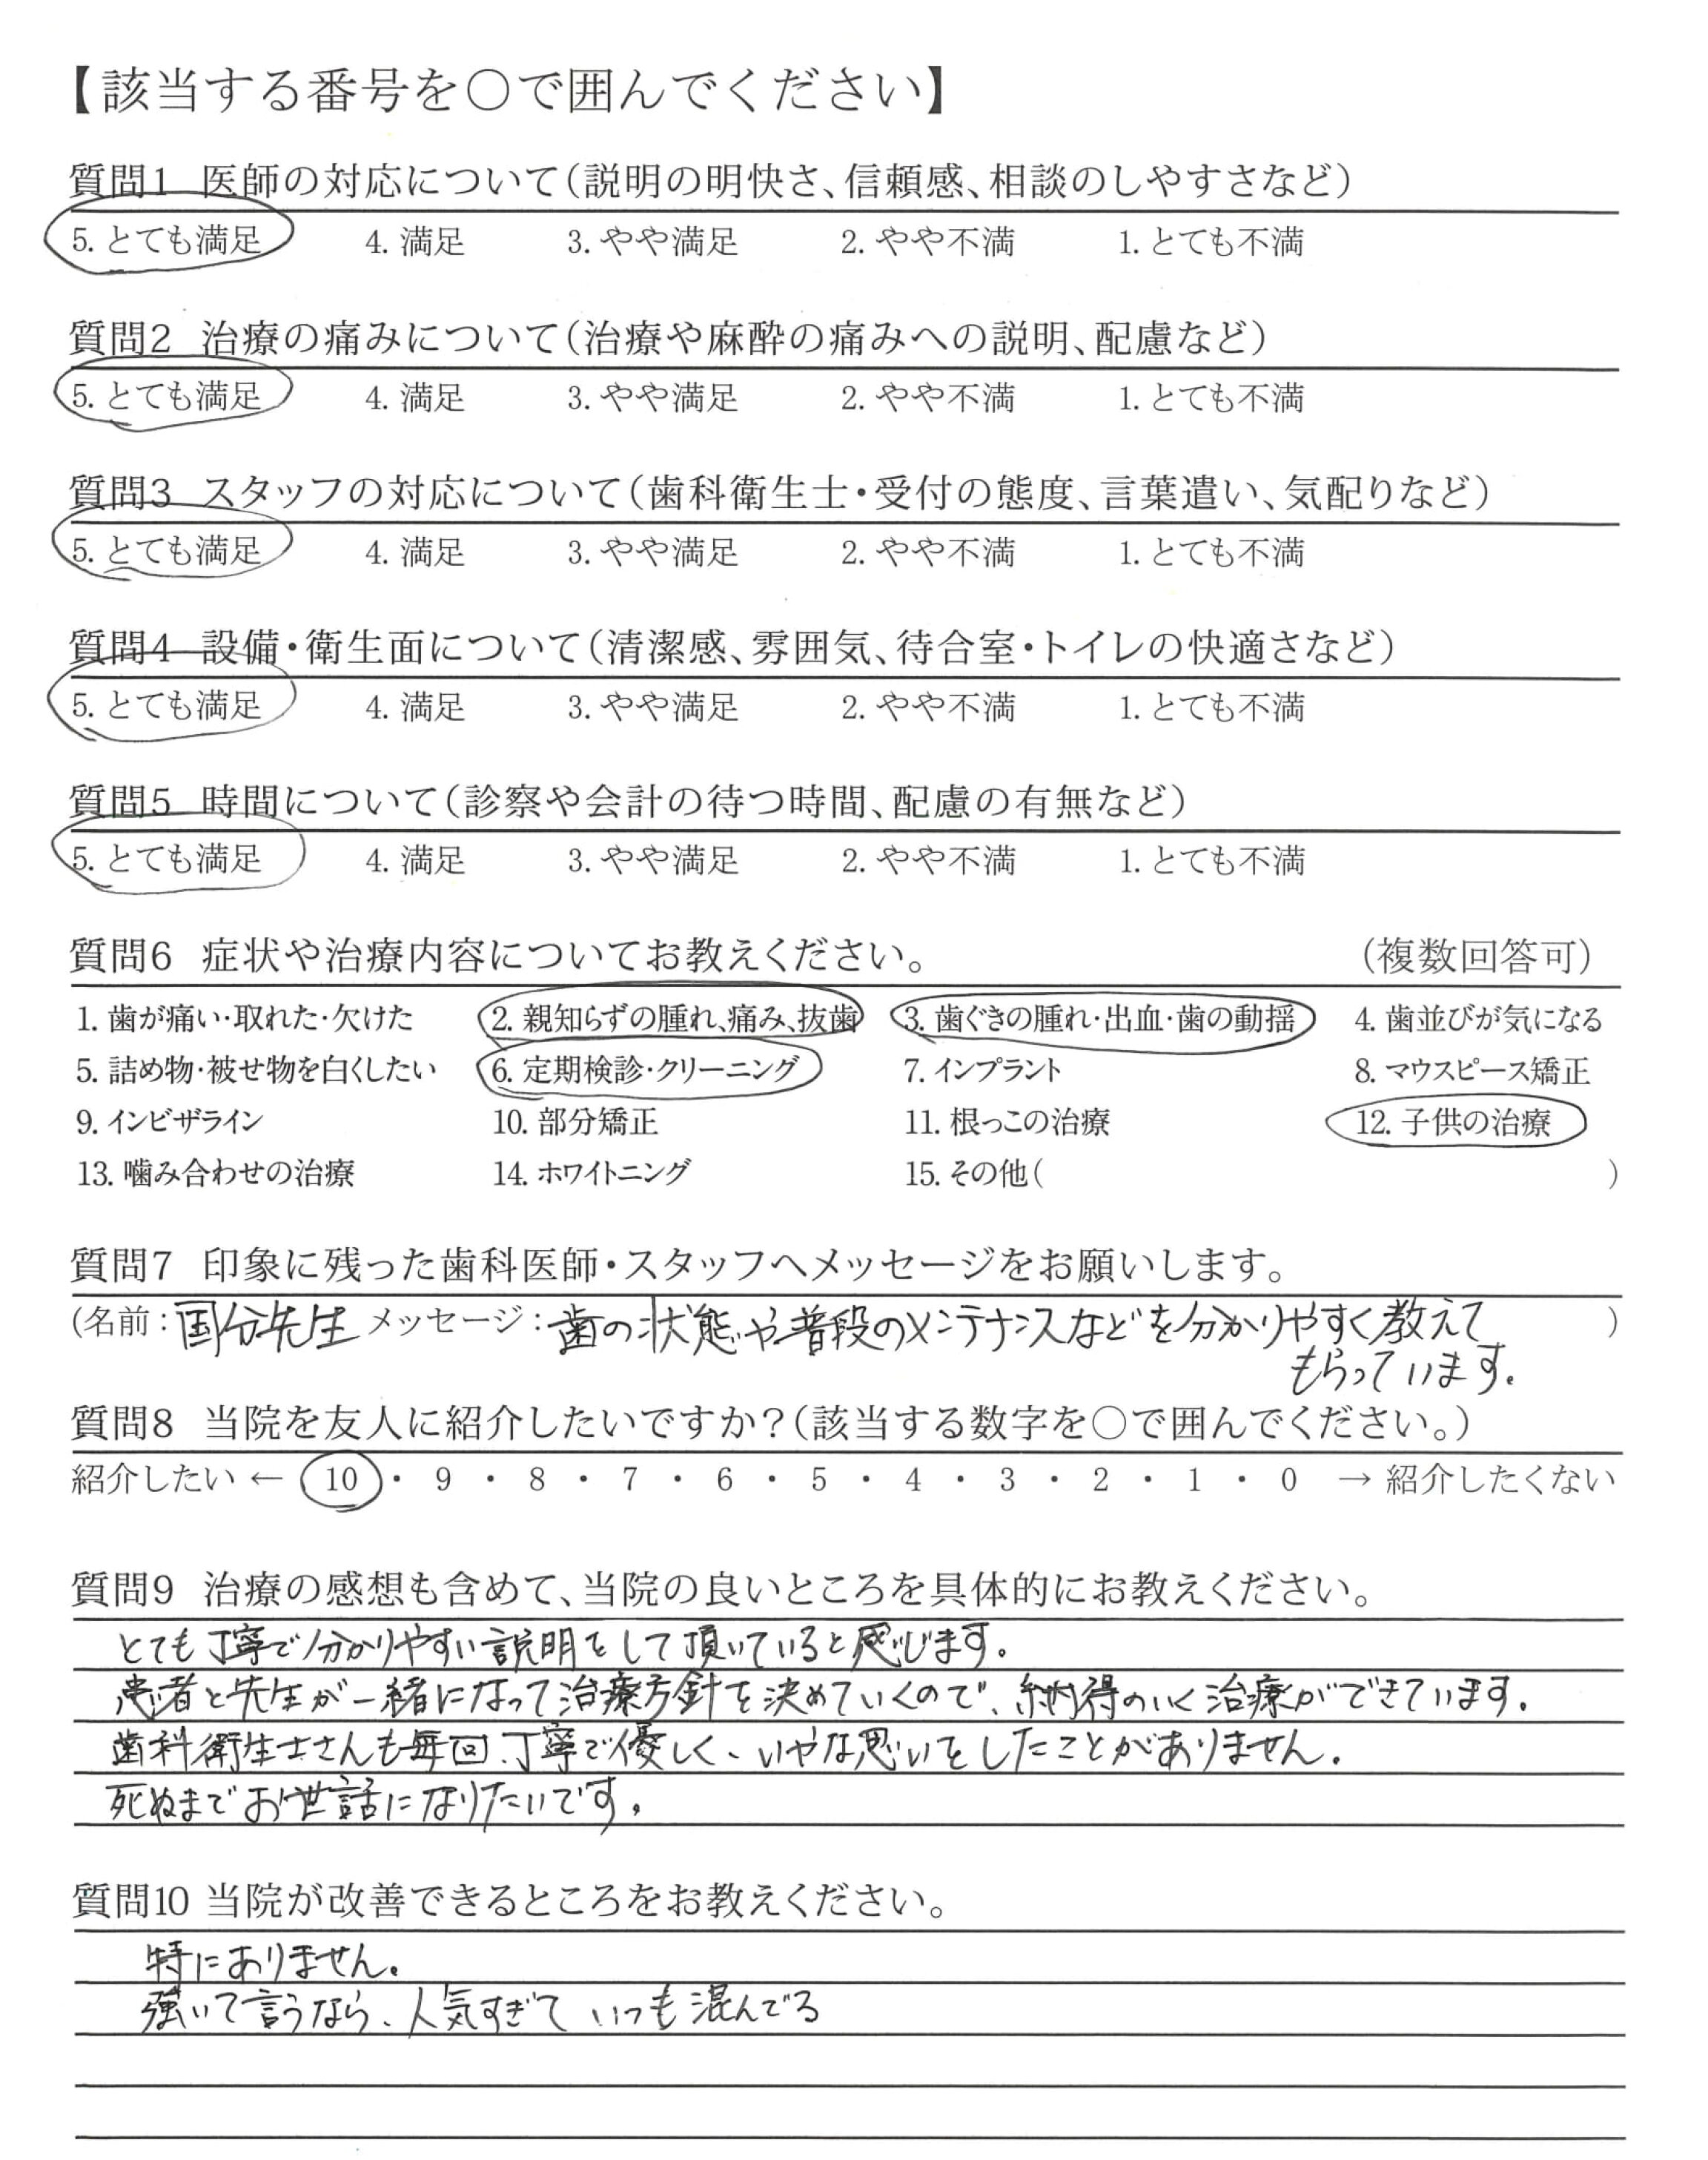 【該当する番号を○で囲んでください】
質問1 医師の対応について（説明の明快さ、信頼感、相談のしやすさなど）
5. とても満足 4. 満足 3. やや満足 2. やや不満 1. とても不満
質問2 治療の痛みについて（治療や麻酔の痛みへの説明、配慮など）
5. とても満足 4. 満足 3. やや満足 2. やや不満 1. とても不満
質問3 スタッフの対応について（歯科衛生士・受付の態度、言葉遣い、気配りなど）
5. とても満足 4. 満足 3. やや満足 2. やや不満 1. とても不満
質問4 設備・衛生面について（清潔感、雰囲気、待合室・トイレの快適さなど）
5. とても満足 4. 満足 3. やや満足 2. やや不満 1. とても不満
質問5 時間について（診察や会計の待つ時間、配慮の有無など）
5. とても満足 4. 満足 3. やや満足 2. やや不満 1. とても不満
質問6 症状や治療内容についてお教えください。 （複数回答可）
1. 歯が痛い・取れた・欠けた 2. 親知らずの腫れ、痛み、抜歯 3. 歯ぐきの腫れ・出血・歯の動揺 4. 歯並びが気になる
5. 詰め物・被せ物を白くしたい 6. 定期検診・クリーニング 7. インプラント 8. マウスピース矯正
9. インビザライン 10. 部分矯正 11. 根っこの治療 12. 子供の治療
13. 噛み合わせの治療 14. ホワイトニング 15. その他（ ）
質問7 印象に残った歯科医師・スタッフへメッセージをお願いします。
（名前：国分先生 メッセージ：歯の状態や普段のメンテナンスなどを分かりやすく教えて ）
もらっています。
質問8 当院を友人に紹介したいですか？（該当する数字を○で囲んでください。）
紹介したい ← 10 ・ 9 ・ 8 ・ 7 ・ 6 ・ 5 ・ 4 ・ 3 ・ 2 ・ 1 ・ 0 → 紹介したくない
質問9 治療の感想も含めて、当院の良いところを具体的にお教えください。
とても丁寧で分かりやすい説明をして頂いていると感じます。
患者と先生が一緒になって治療方針を決めていくので、納得のいく治療ができています。
歯科衛生士さんも毎回、丁寧で優しく、いやな思いをしたことがありません。
死ぬまでお世話になりたいです。
質問10 当院が改善できるところをお教えください。
特にありません。
強いて言うなら、人気すぎていつも混んでる